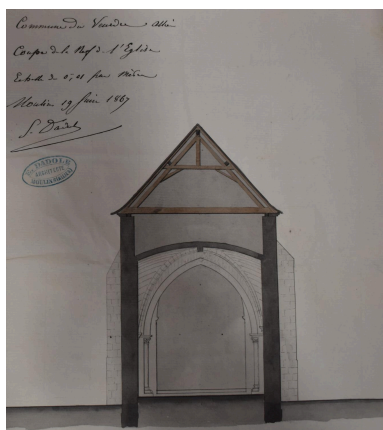 Commune du Veurdre Allier
Coupe de la Nef de l'Eglise
Echelle de 0,01 par Mètre
Moulins 19 Juin 1867
S. Dadole
DADOLE
ARCHITECTE